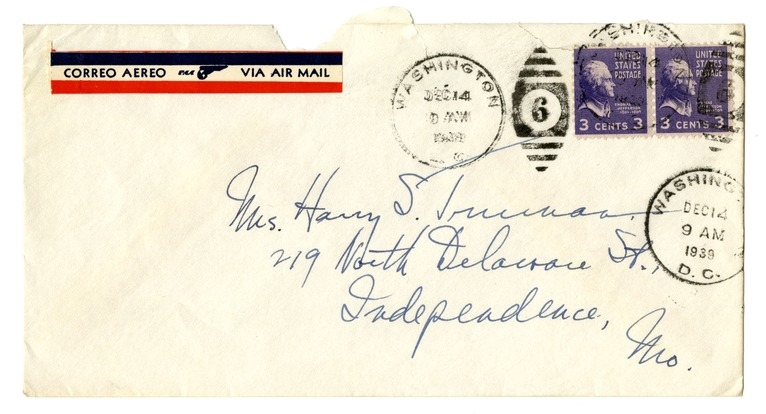 CORREO AEREO PAA VIA AIR MAIL
WASHINGTON
DEC 14
9 AM
1939
D. C.
6
UNITED STATES POSTAGE
THOMAS JEFFERSON
3 CENTS 3
UNITED STATES POSTAGE
3 CENTS 3
WASHINGTON
DEC 14
9 AM
1939
D. C.
Mrs. Harry S. Truman
219 North Delaware St.,
Independence,
Mo.